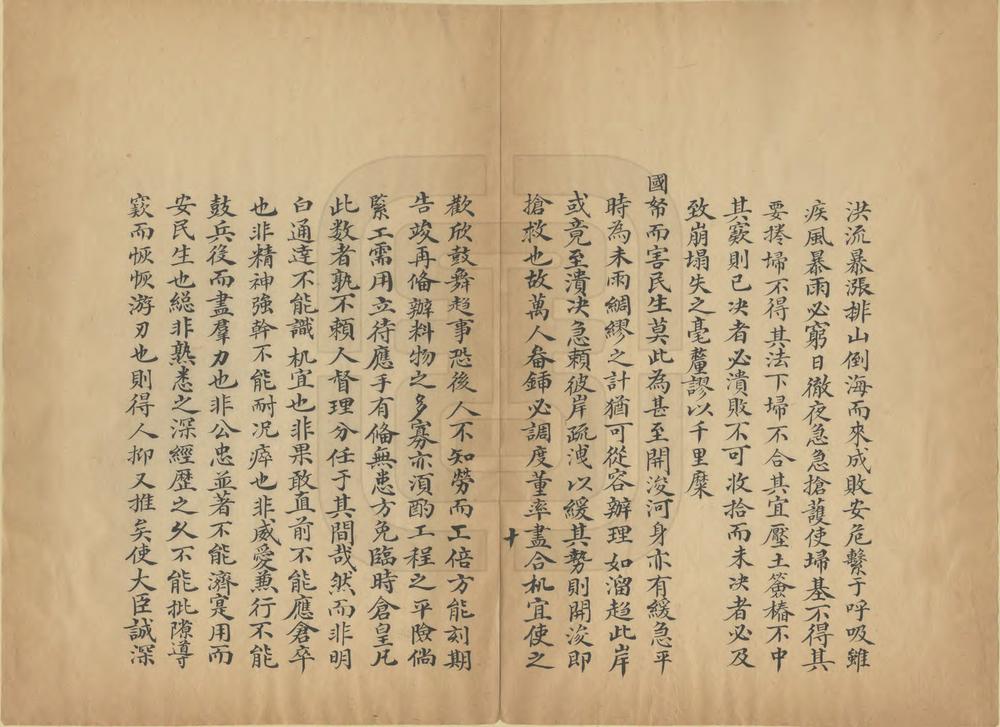 洪流暴漲排山倒海而來成敗安危繫于呼吸雖
疾風暴雨必窮日徹夜急急搶護使埽基不得其
要捲埽不得其法下埽不合其宜壓土簽樁不中
其窽則已决者必潰敗不可收拾而未决者必及
致崩塌失之毫釐謬以千里糜
國帑而害民生莫此為甚至開浚河身亦有緩急平
時為未雨綢繆之計猶可從容辦理如溜趨此岸
或竟至潰决急賴彼岸疏洩以緩其勢則開浚即
搶救也故萬人畚鍤必調度董率盡合机宜使之
十
歡欣鼓舞趨事恐後人不知勞而工倍方能刻期
告竣再俻辦料物之多寡亦湏酌工程之平險倘
緊工需用立待應手有俻無患方免臨時倉皇凡
此数者孰不頼人督理分任于其間哉然而非明
白通達不能識机宜也非果敢直前不能應倉卒
也非精神強幹不能耐况瘁也非威愛兼行不能
鼓兵役而盡羣力也非公忠並著不能濟寔用而
安民生也縂非熟悉之深經歷之久不能批隙導
窽而恢恢游刃也則得人抑又推矣使大臣誠深